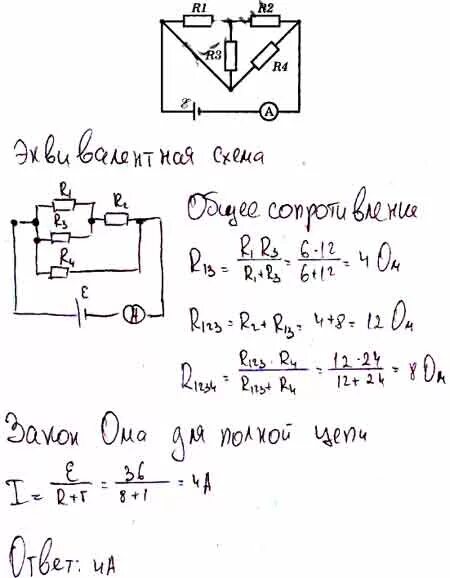 R1 R2
R3 R4
ℰ A
Эквивалентная схема
R₁
R₃ R₂
R₄
ε A
Общее сопротивление
R₁₃ = R₁ R₃ / R₁+R₃ = 6·12 / 6+12 = 4 Ом
R₁₂₃ = R₂ + R₁₃ = 4+8 = 12 Ом
R₁₂₃₄ = R₁₂₃ · R₄ / R₁₂₃ + R₄ = 12·24 / 12+24 = 8 Ом
Закон Ома для полной цепи
I = ε / R+r = 36 / 8+1 = 4A
Ответ: 4A